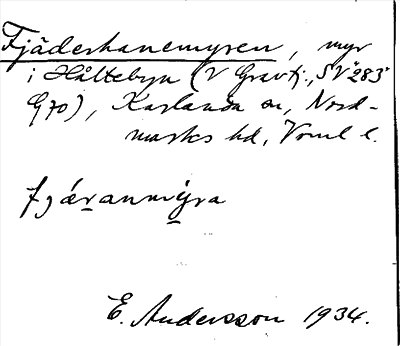 Fjäderhanemyren, myr
i Håltebyn (V Gravtj., SV 283
G70), Karlanda sn, Nord-
marks hd, Vrml l.
fjæranmyra
E. Andersson 1934.